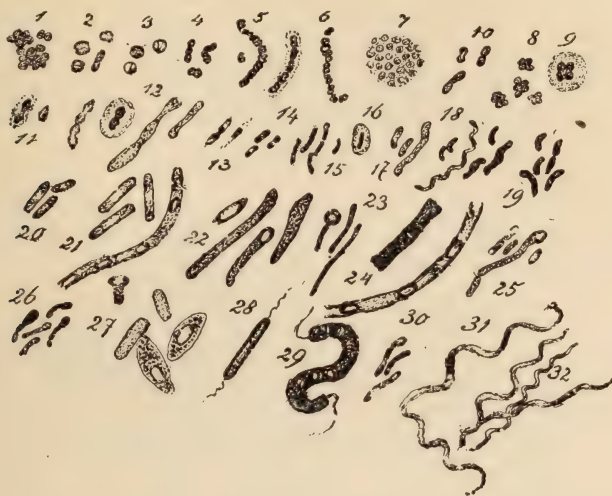 1 2 3 4 5 6 7 10 8 9
11 12 13 14 15 16 17 18 19
20 21 22 23 24 25
26 27 28 29 30 31 32